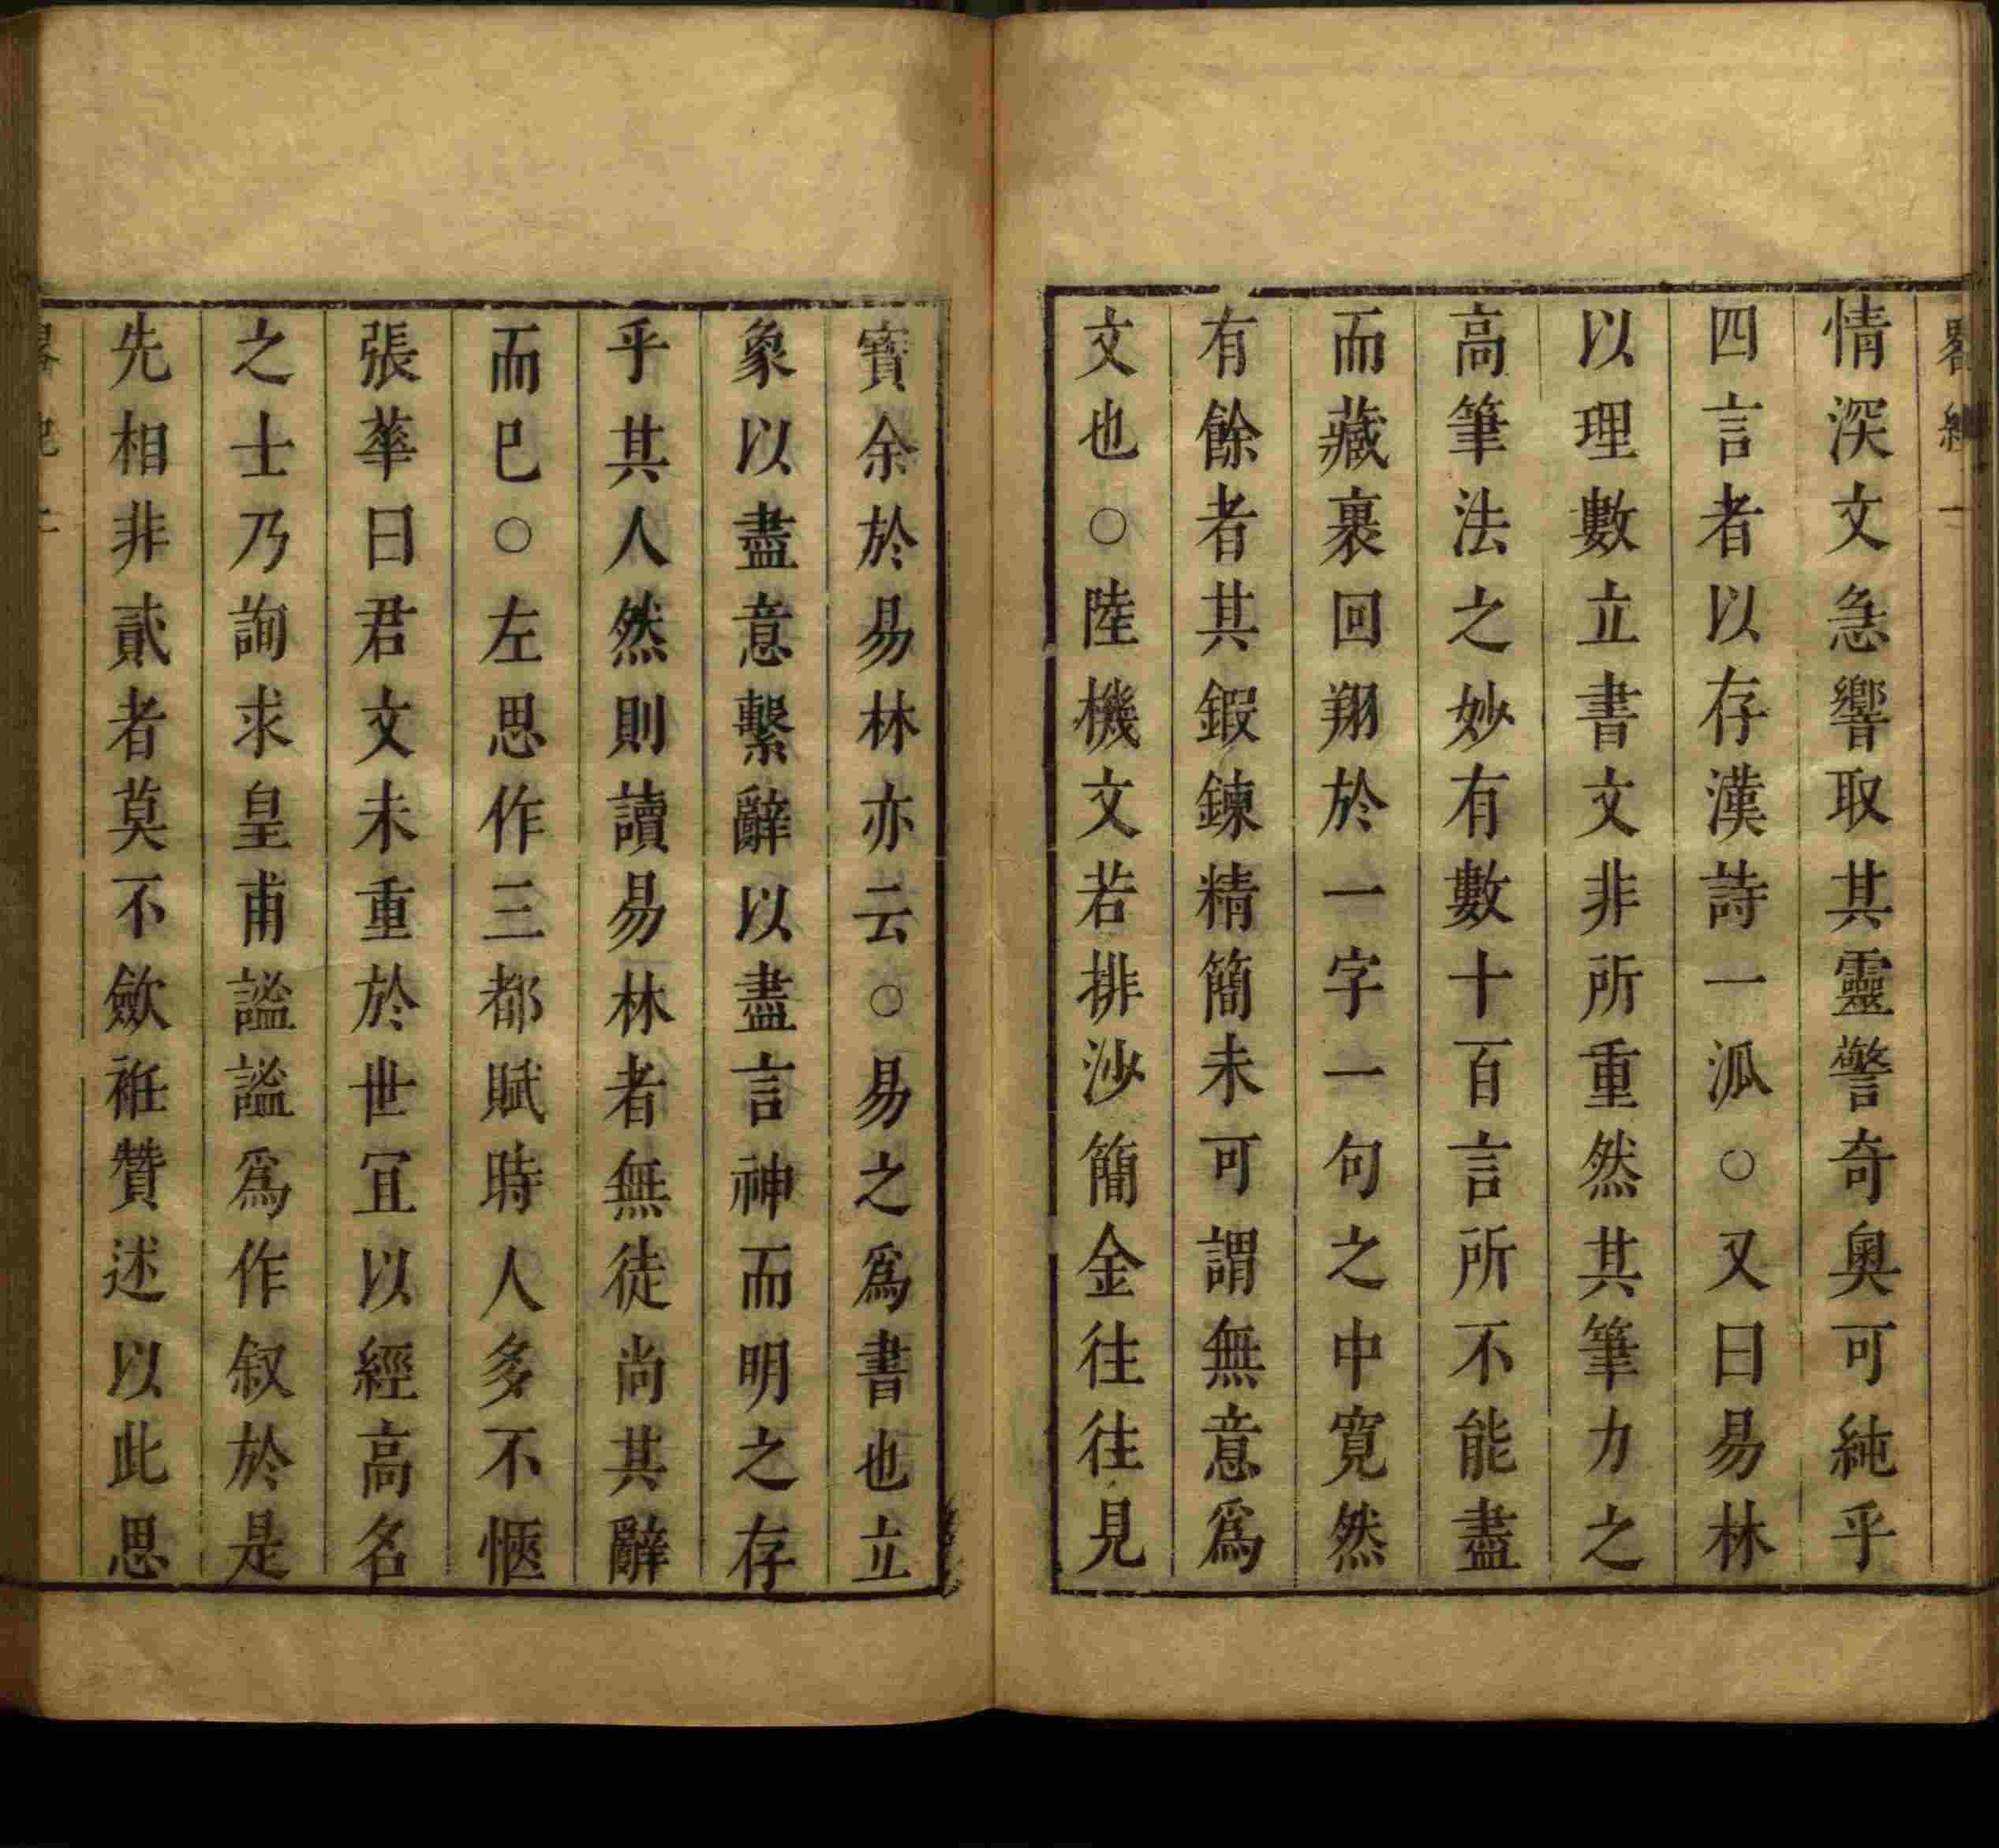 情深文急響取其靈警奇奧可純乎
四言者以存漢詩一泒○又曰易林
以理數立書文非所重然其筆力之
高筆法之妙有數十百言所不能盡
而藏裹回翔於一字一句之中寬然
有餘者其鍜鍊精簡未可謂無意爲
文也○陸機文若排沙簡金往往見
寳余於易林亦云○易之爲書也立
象以盡意繫辭以盡言神而明之存
乎其人然則讀易林者無徒尚其辭
而巳○左思作三都賦時人多不愜
張華曰君文未重於世冝以經高名
之士乃詢求皇甫謐謐爲作叙於是
先相非貳者莫不歛袵贊述以此思